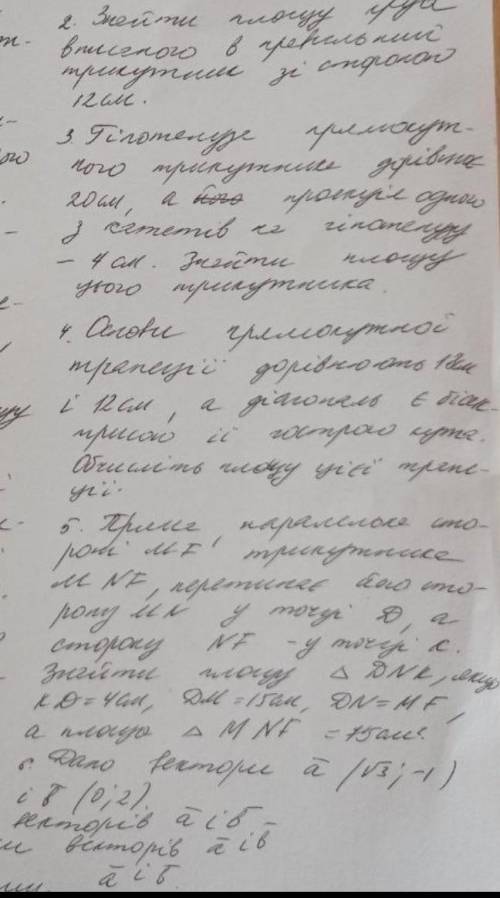 2. Знайти площу круга
вписаного в правильний
трикутник зі стороною
12 см.
3. Гіпотенуза прямокут-
ного трикутника дорівнює
20 см, а його проекція одного
з катетів на гіпотенузу
– 4 см. Знайти площу
цього трикутника.
4. Основи прямокутної
трапеції дорівнюють 18 см
і 12 см, а діагональ є бісек-
трисою її гострого кута.
Обчисліть площу цієї трапе-
ції.
5. Пряма, паралельна сто-
роні MF трикутника
MNF, перетинає його сто-
рону MN у точці D, а
сторону NF – у точці K.
Знайти площу △ DNK, якщо
KD = 4 см, DM = 15 см, DN = MF,
а площа △ MNF = 75 см².
6. Дано вектори a̅ (√3; -1)
і b̅ (0; 2).
векторів a̅ і b̅ –
векторів a̅ і b̅
a̅ і b̅